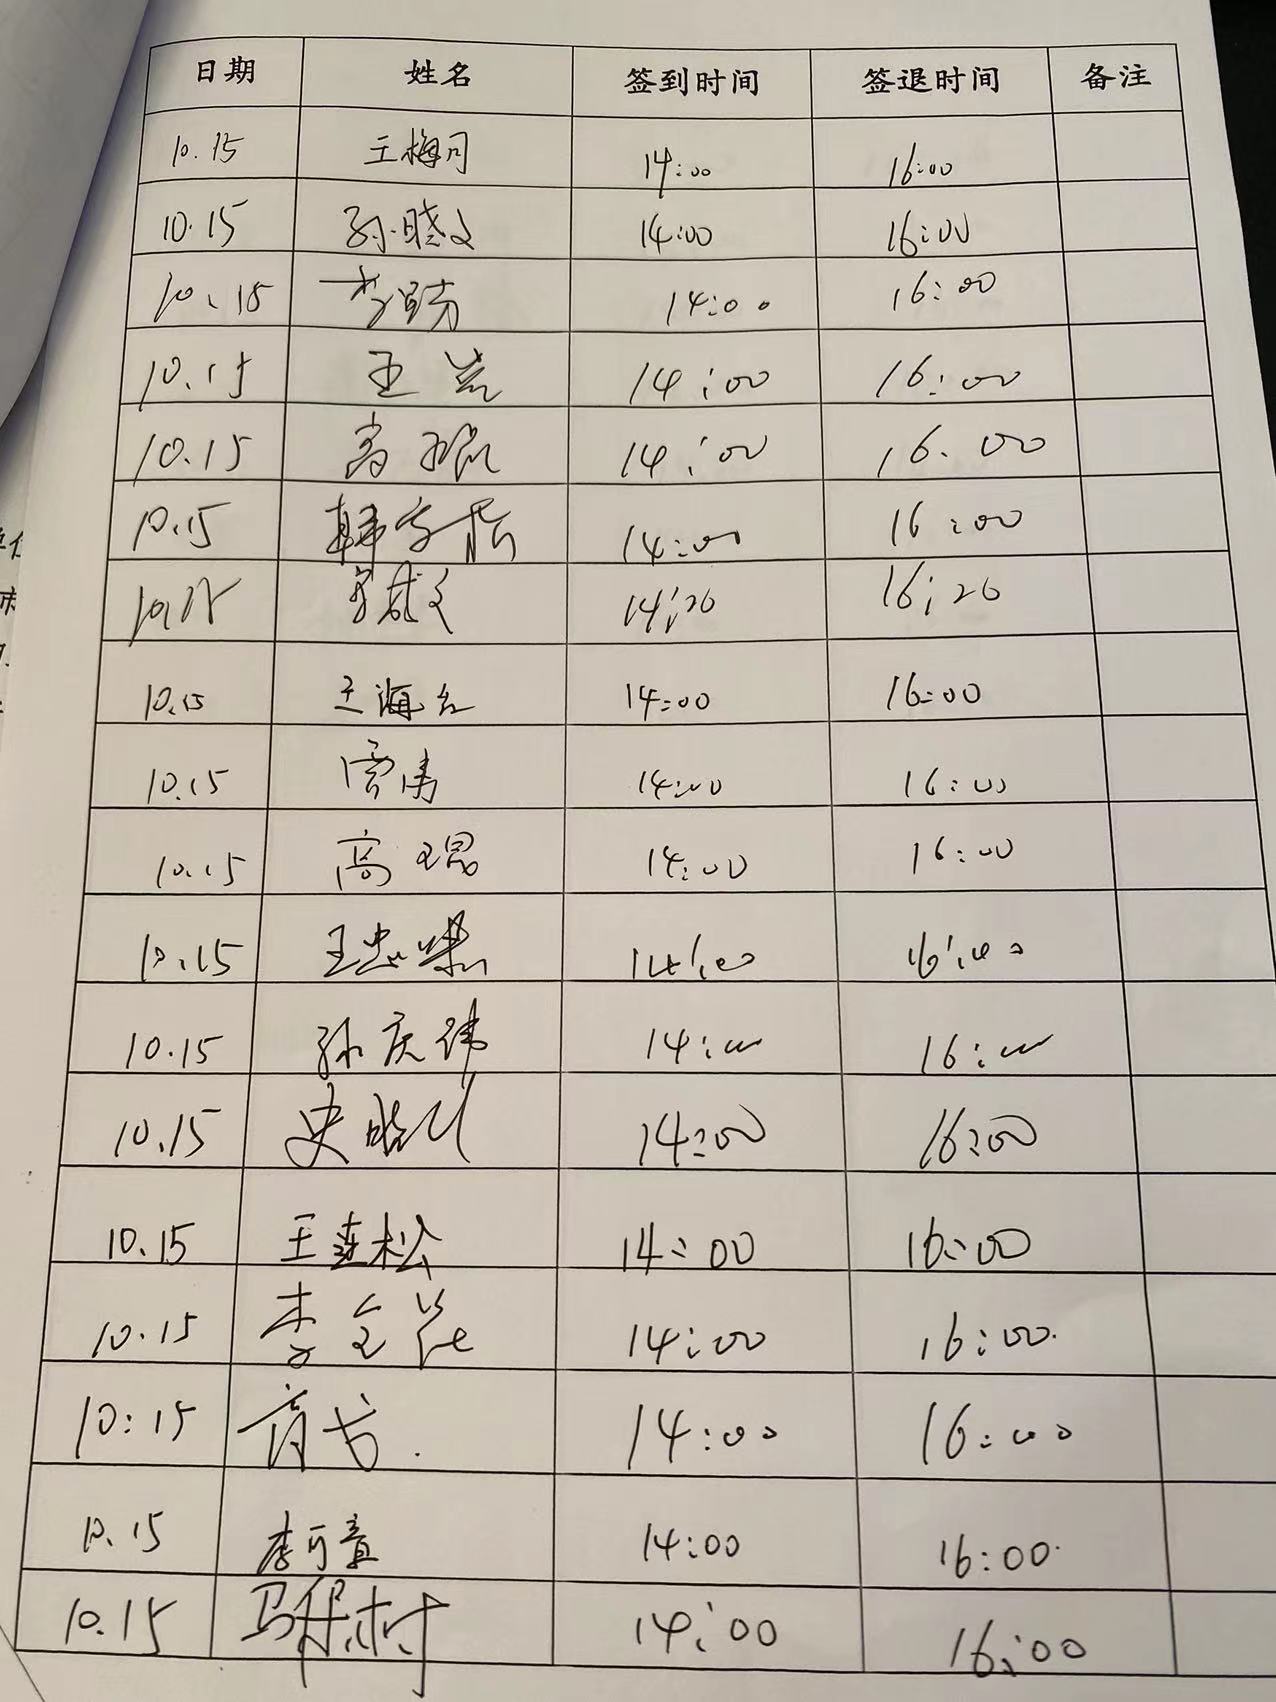 日期 姓名 签到时间 签退时间 备注
10.15 王梅 14:00 16:00
10.15 孙晓文 14:00 16:00
10.15 李 14:00 16:00
10.15 王 14:00 16:00
10.15 高 14:00 16:00
10.15 韩 14:00 16:00
10.15 14:20 16:20
10.15 王海红 14:00 16:00
10.15 14:00 16:00
10.15 高琨 14:00 16:00
10.15 王忠 14:00 16:00
10.15 孙庆伟 14:00 16:00
10.15 史晓 14:00 16:00
10.15 王连松 14:00 16:00
10.15 李 14:00 16:00
10:15 14:00 16:00
10.15 李可意 14:00 16:00
10.15 马保村 14:00 16:00